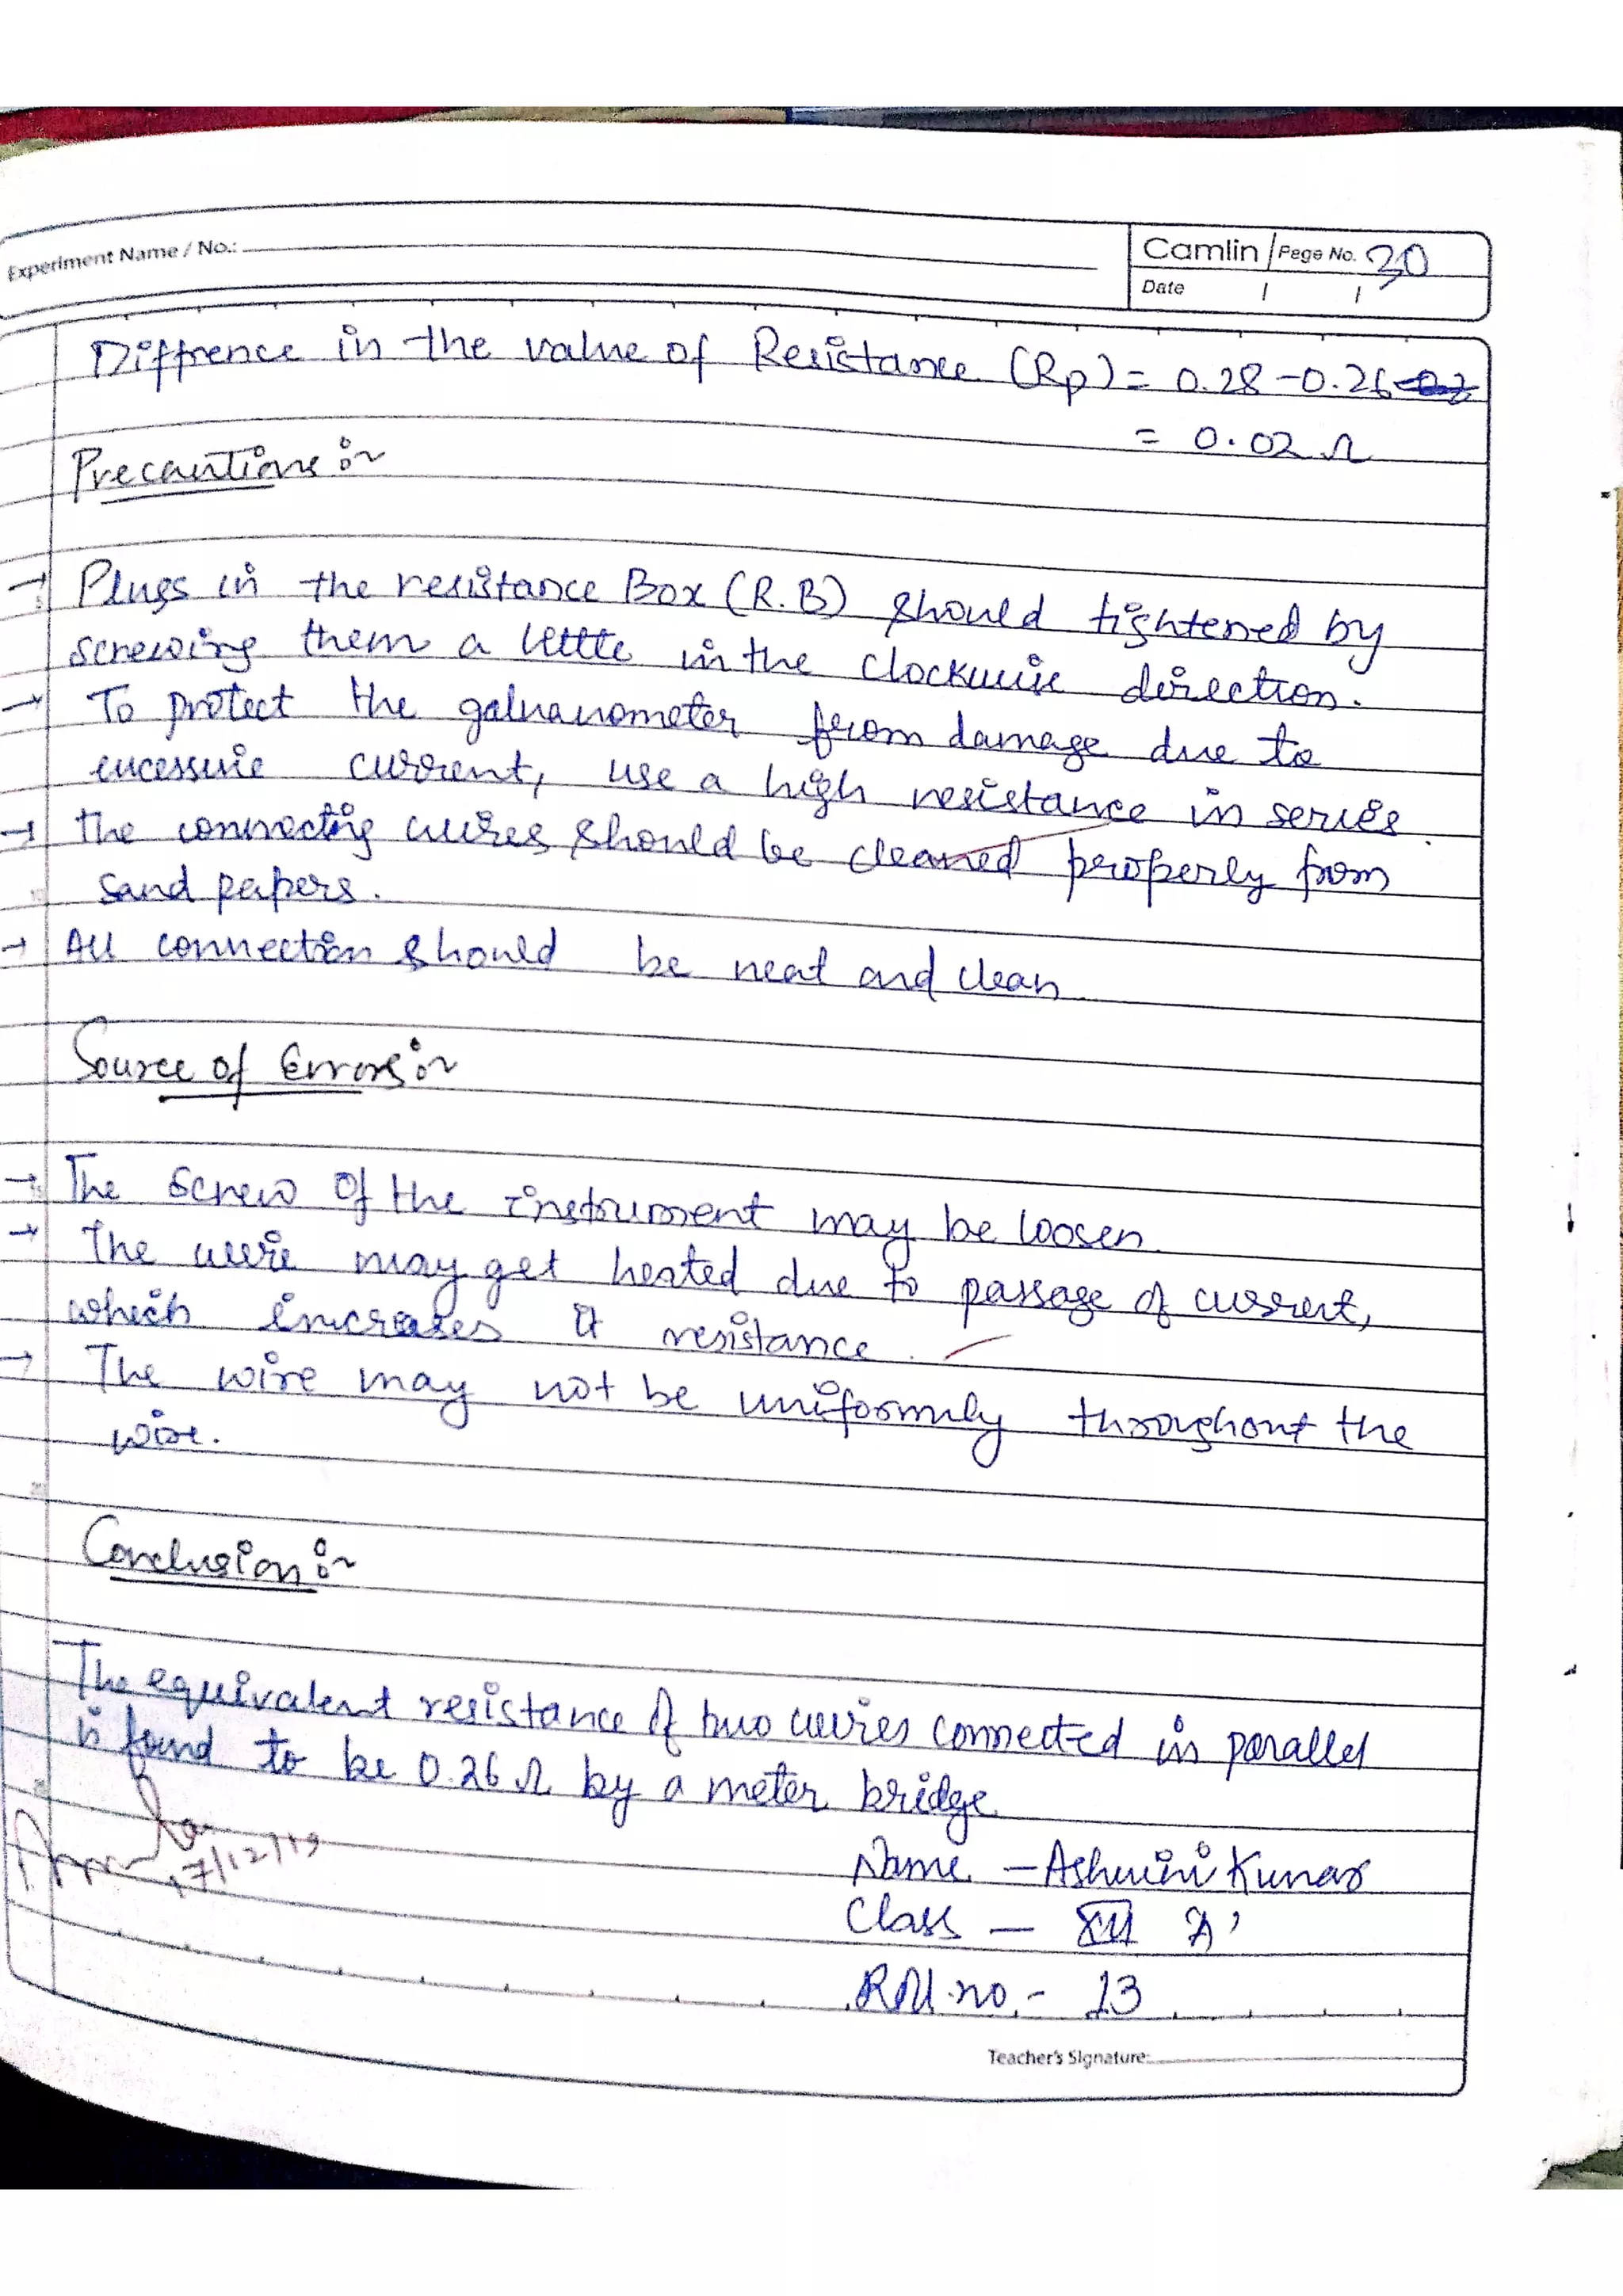 Experiment Name / No.:
Camlin Page No. 30
Date / /
Diffrence in the value of Resistance (Rp) = 0.28 - 0.26
= 0.02 Ω
Precautions :~
→ Plugs in the resistance Box (R.B) should tightened by
screwing them a little in the clockwise direction.
→ To protect the galvanometer from damage due to
excessive current, use a high resistance in series
→ The connecting wires should be cleaned properly from
sand papers.
→ All connection should be neat and clean
Source of Errors :~
→ The screw of the instrument may be loosen.
→ The wire may get heated due to passage of current,
which increases it resistance.
→ The wire may not be uniformly throughout the
wire.
Conclusion :~
The equivalent resistance of two wires connected in parallel
is found to be 0.26 Ω by a meter bridge
17/12/19
Name - Ashwini Kumar
Class - XII 'A'
Roll no. - 13
Teacher's Signature: